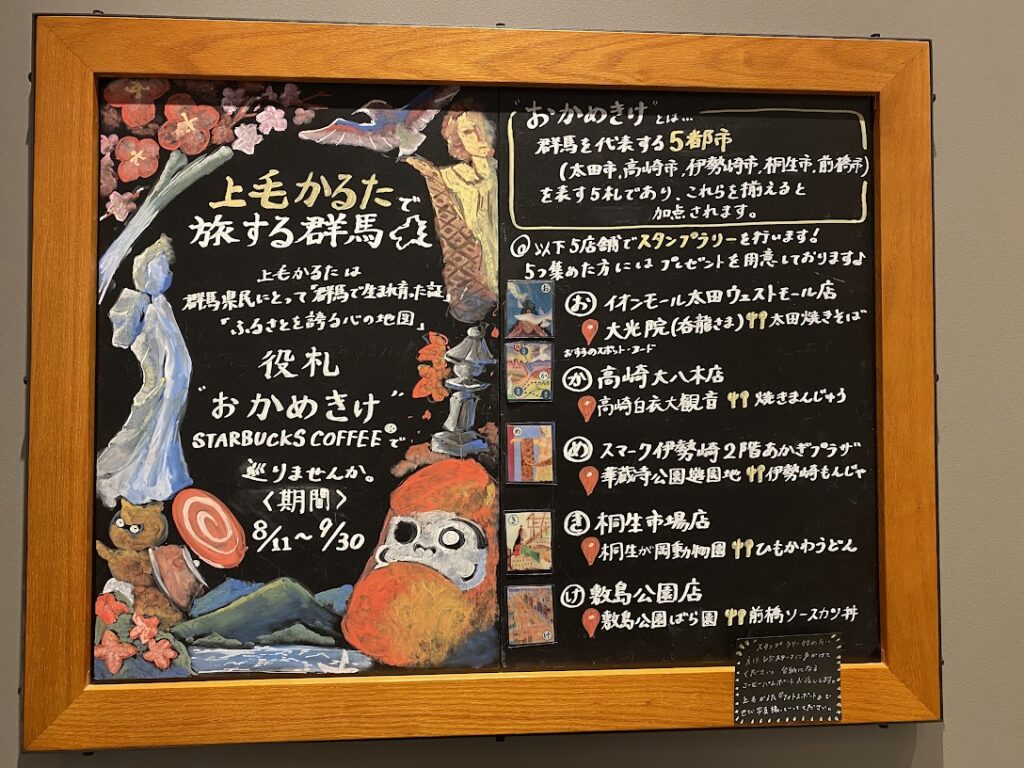 上毛かるたで
旅する群馬
上毛かるたは
群馬県民にとって"群馬で生まれ育った証"
「ふるさとを誇る心の地図」
役札
"おかめきけ"
STARBUCKS COFFEE®で
巡りませんか。
〈期間〉
8/11〜9/30
"おかめきけ"とは…
群馬を代表する5都市
(太田市,高崎市,伊勢崎市,桐生市,前橋市)
を表す5札であり、これらを揃えると
加点されます。
@以下5店舗でスタンプラリーを行います!
5つ集めた方にはプレゼントを用意しております♪
お イオンモール太田ウェストモール店
大光院(呑龍さま) 太田焼きそば
おすすめスポット・フード
か 高崎大八木店
高崎白衣大観音 焼きまんじゅう
め スマーク伊勢崎2階あかぎプラザ
華蔵寺公園遊園地 伊勢崎もんじゃ
き 桐生市場店
桐生が岡動物園 ひもかわうどん
け 敷島公園店
敷島公園ばら園 前橋ソースカツ丼
スタンプラリー
ください。台紙になる
コーヒーパスポートお渡しします。